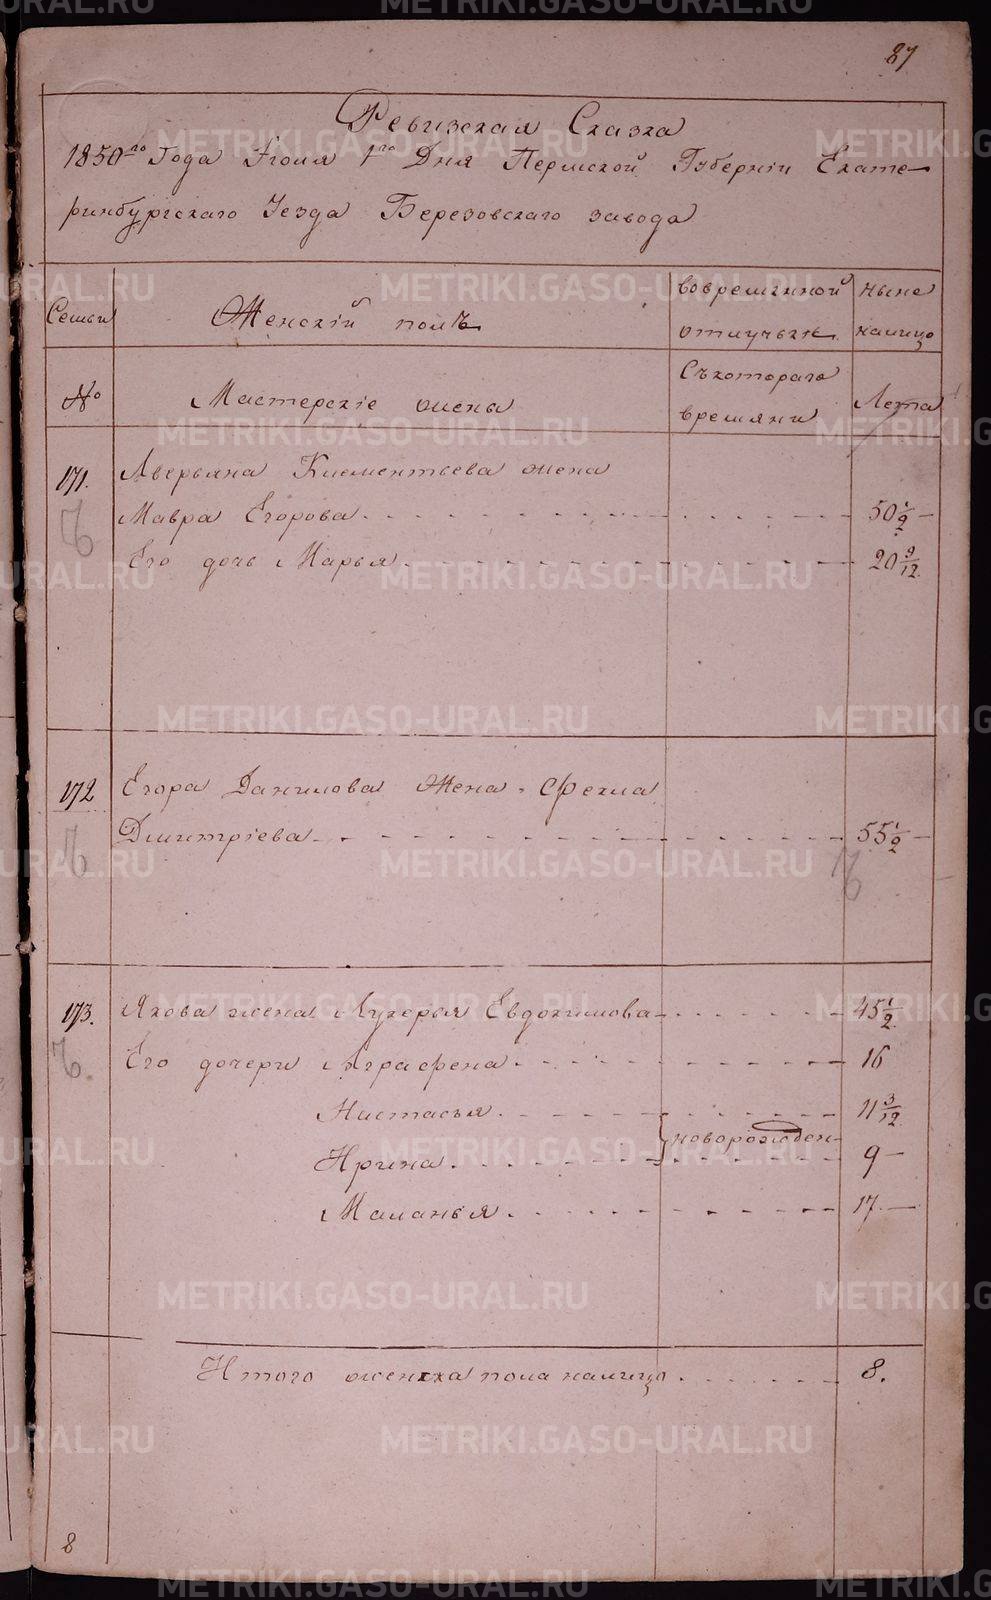 87
Ревизская Сказка
1850го Года Іюля 1го Дня Пермской Губерніи Екате-
ринбургскаго Уезда Березовскаго завода
Семьи
Женскій полъ
вовременной
отлучьке
ныне
налицо
№
Мастерскіе жены
Съкотораго
времяни
Лета
171.
Аверьяна Клементьева жена
Мавра Егорова 50 1/2
Его дочь Марья 20 9/12
172
Егора Данилова Жена Фекла
Дмитріева 55 1/2
173.
Якова жена Лукерья Евдокимова 45 1/2
Его дочери Аграфена 16
Настасья 11 3/12
новорожден
Ирина 9
Маланья 17
Итого женска пола налицо 8.
8
METRIKI.GASO-URAL.RU